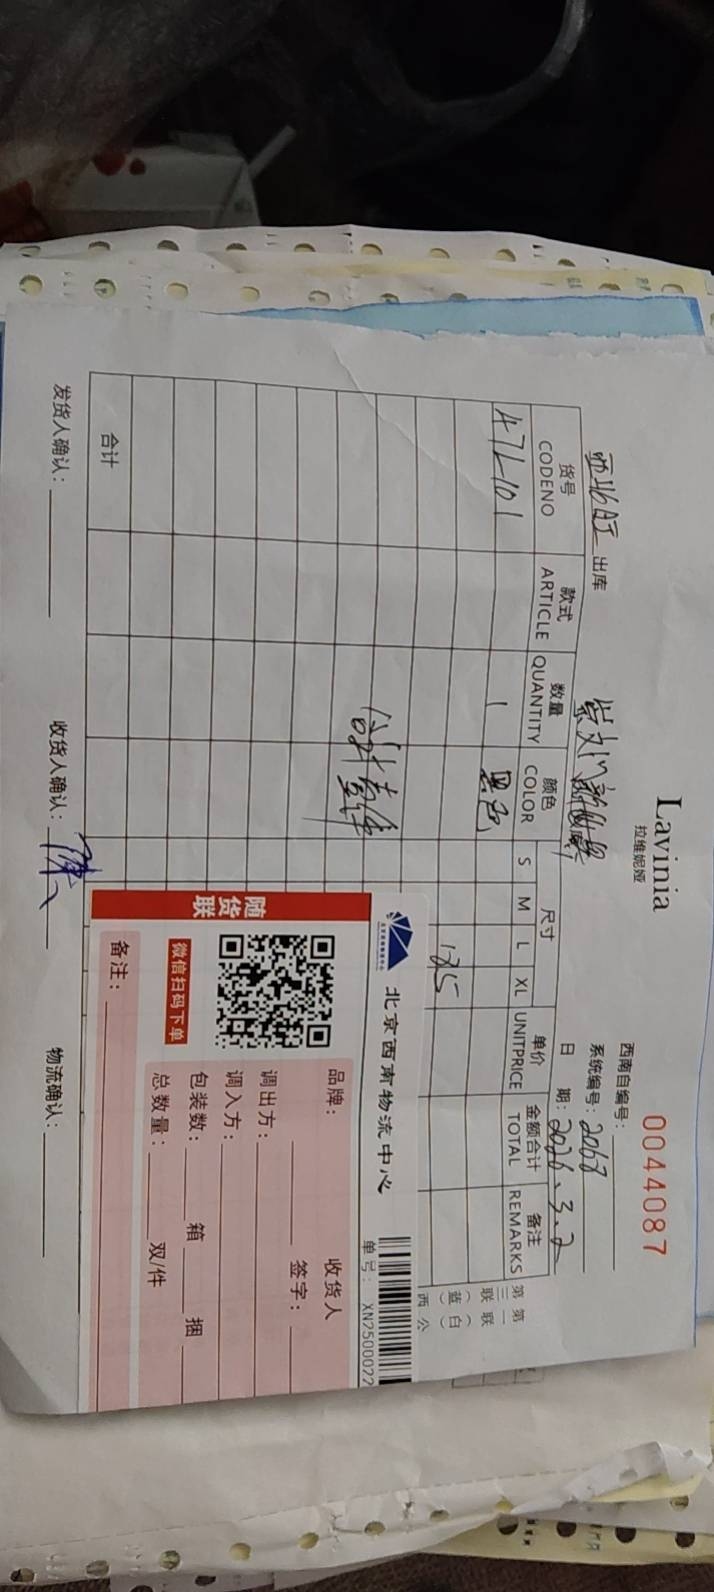 Lavinia
拉维妮娅
0044087
西南自编号：
系统编号：2068
出库 崇文门新世界
日 期：2026.3.2
货号 款式 数量 颜色 尺寸 单价 金额合计 备注
CODENO ARTICLE QUANTITY COLOR S M L XL UNITPRICE TOTAL REMARKS
47L101 1 黑色
175
合计
发货人确认： 收货人确认： 物流确认：
第一联（白）公
第三联（蓝）西
北京西南物流中心
单号： XN2500022
随货联
微信扫码下单
品牌： 收货人
调出方： 签字：
调入方：
包装数： 箱 捆
总数量： 双/件
备注：